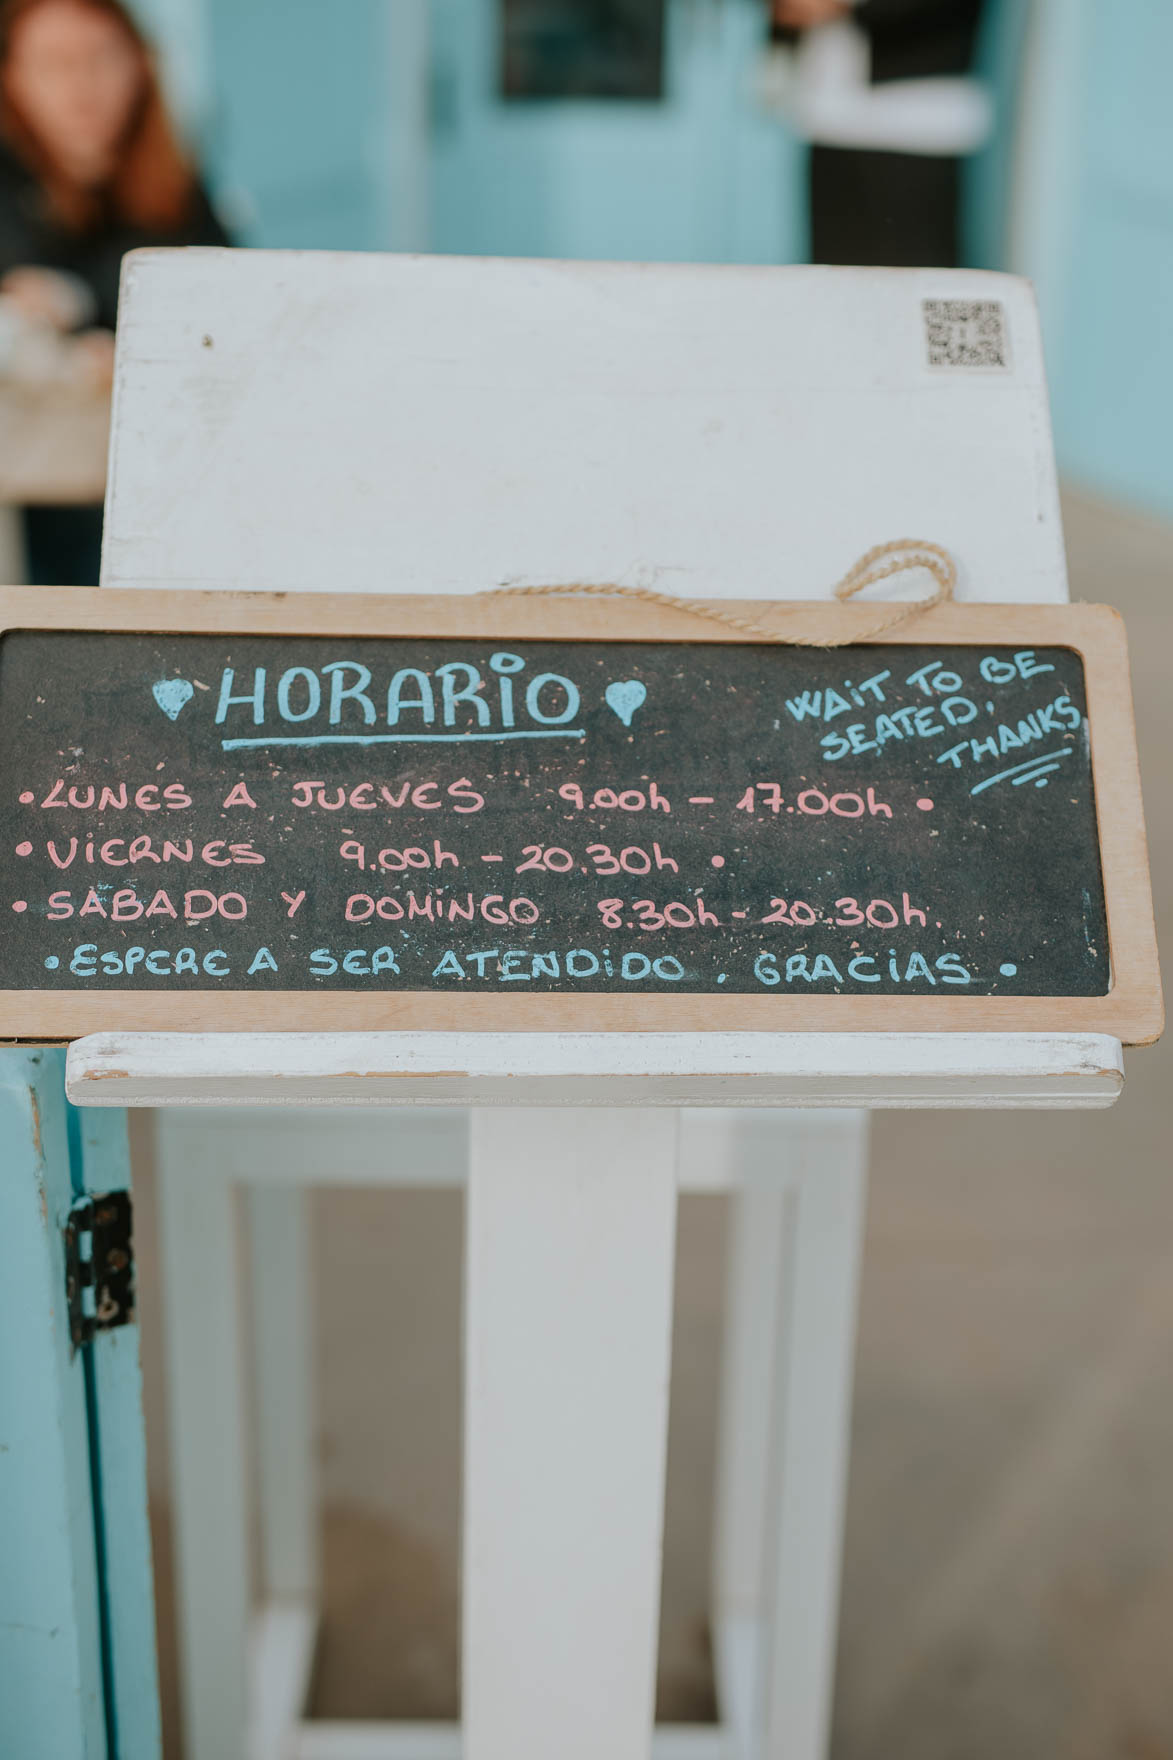 HORARIO
WAIT TO BE
SEATED,
THANKS
• LUNES A JUEVES 9.00h - 17.00h •
• VIERNES 9.00h - 20.30h •
• SABADO Y DOMINGO 8.30h - 20.30h.
• ESPERE A SER ATENDIDO. GRACIAS •